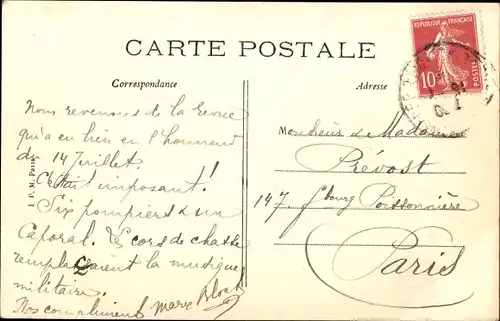 CARTE POSTALE
Correspondance
Adresse
REPUBLIQUE FRANÇAISE
POSTES
10
Nous revenons de la revue
qui a eu lieu en l'honneur
du 14 Juillet.
C'était imposant!
Six pompiers & un
Caporal. Les cors de chasse
remplaçaient la musique
militaire.
Nos compliments Marc Bloch
Monsieur & Madame
Prévost
147, fbourg Poissonnière
Paris
J P. M. Paris